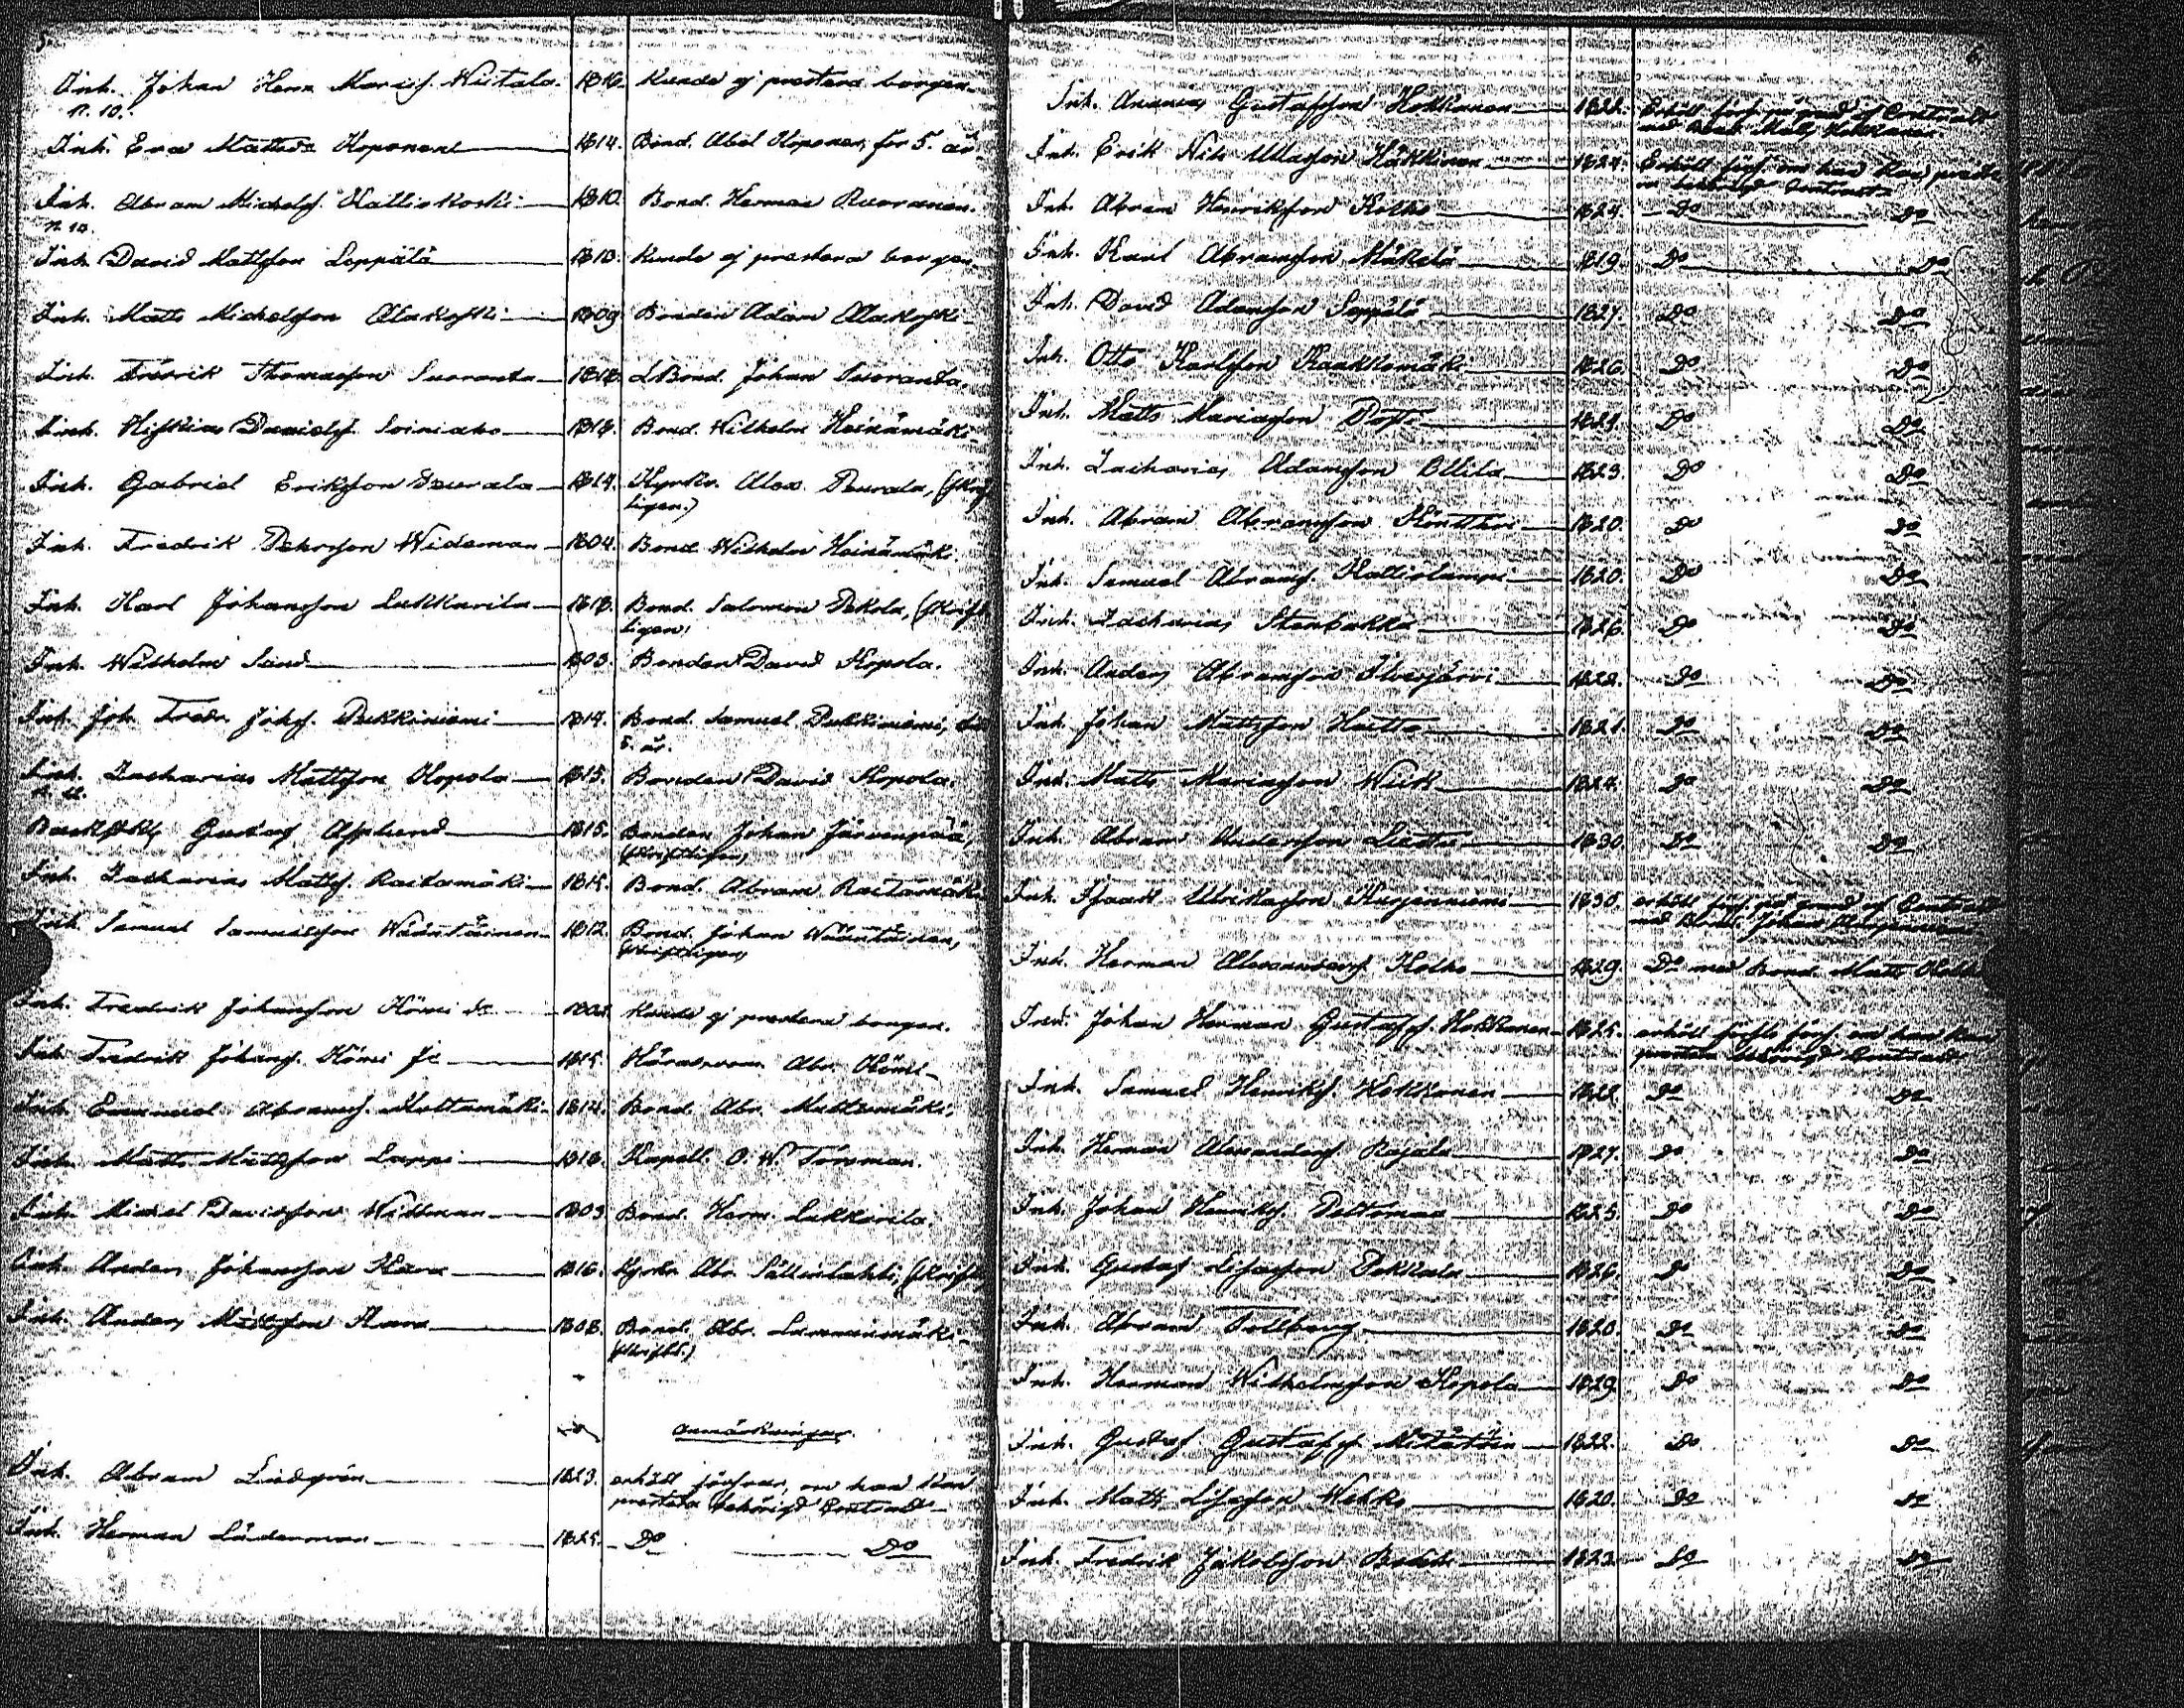 5.
Inh. Johan Herm. Mariæf. Niitala. 1816. Kunde ej prestera borgen.
n. 10.
Inh. Eva Mattsdr Koponen 1814. Bond. Abel Koponen, för 5. år.
Inh. Abram Michelsf. Kalliokoski 1810. Bond. Herman Ruoranen.
n. 10.
Inh. David Mattsson Leppälä 1813. Kunde ej prestera borgen.
Inh. Matts Michelsson Alakoski 1809. Bonden Adam Alakoski
Inh. Fredrik Thomasson Suoranta 1818. L.Bond. Johan Suoranta.
Inh. Hiskias Davidsf. Soiniaho 1818. Bond. Wilhelm Heinämäki
Inh. Gabriel Eriksson Peurala 1814. Kyrkv. Alex. Peurala, (skrift
ligen.)
Inh. Fredrik Pehrsson Wideman 1804. Bond. Wilhelm Heinämäki.
Inh. Karl Johansson Lukkarila 1818. Bond. Salomon Pekola, (skrift
ligen.
Inh. Wilhelm Sand 1803. Bonden David Kopola.
Inh. Joh. Fredr. Johsf. Pukkiniemi 1814. Bond. Samuel Pukkiniemi,
5. år.
Inh. Zacharias Mattsson Kopola 1815. Bonden David Kopola.
Gustaf Asplund 1815. Bonden Johan Järvenpää,
(skriftligen)
Inh. Zacharias Mattsf. Raitamäki 1815. Bond. Abram Raitamäki
Inh. Samuel Samuelsson Wääntäinen 1812. Bond. Johan Wääntäinen,
(skriftligen)
Inh. Fredrik Johansson Hömi Kunde ej prestera borgen.
Inh. Fredrik Johansf. Hömi 1815. Abr. Hömi
Inh. Emanuel Abramsf. Mattomäki 1814. Bond. Abr. Mattomäki.
Inh. Matts Mattsson Lappi 1818. Kapell. O. W. Forsman.
Inh. Michel Davidsson Willman 1803. Bond. Herm. Lukkarila.
Inh. Anders Johansson Kara 1816. Kyrkv. Abr. Sällinlahti, (skriftl
Inh. Anders Mattsson Kara 1808. Bond. Abr. Lammimäki
(skriftl.)
anmärkningar.
Inh. Abram Lindgrén 1823. erhöll försvar, om han kan
prestera behörigt Contract
Inh. Herman Lindeman 1825. Do Do
6.
Inh. Ananias Gustafsson Hokkanen 1822. Erhöll förs. på grund af Contract
med Bond. Matts Hokkanen
Inh. Erik Nils Ullasson Häkkinen 1824. Erhöll förs. om han kan prestera
behörigt Contract
Inh. Abram Henriksson Kolho 1824. Do Do
Inh. Karl Abramsson Mäkelä 1819. Do Do
Inh. David Adamsson Seppälä 1827. Do Do
Inh. Otto Karlsson Kaakkomäki 1826. Do Do
Inh. Matts Mariasson 1821. Do Do
Inh. Zacharias Adamsson Ollila 1823. Do Do
Inh. Abram Abramsson Kinttari 1820. Do Do
Inh. Samuel Abramsf. Kalliolampi 1820. Do Do
Inh. Zacharias Stenbakka 1826. Do Do
Inh. Anders Abramsson Ilvesjärvi 1822. Do Do
Inh. Johan Mattsson Hautto 1821. Do Do
Inh. Matts Mariasson Wiik 1824. Do Do
Inh. Abram Andersson 1830. Do Do
Inh. Isaak Ulrikasson Kurjenniemi 1830. erhöll förs. på grund af Contract
med Bond. Johan Kurjenniemi
Inh. Herman Alexandersf. Kolho 1829. Do med Bond. Matts Kolho
Inh. Johan Herman Gustafsf. Hokkanen 1825. erhöll förs. om han kan
prestera behörigt Contract
Inh. Samuel Henriksf. Hokkanen 1822. Do Do
Inh. Herman Alexandersf. Rajala 1827. Do Do
Inh. Johan Henriksf. Peltomaa 1825. Do Do
Inh. Gustaf Lisasson Pekkala 1826. Do Do
Inh. Abram Tollberg 1820. Do Do
Inh. Herman Wilhelmsson Kopola 1829. Do Do
Inh. Gustaf Gustafsf. 1822. Do Do
Inh. Matts Lisasson Wehko 1820. Do Do
Inh. Fredrik Jakobsson 1823. Do Do